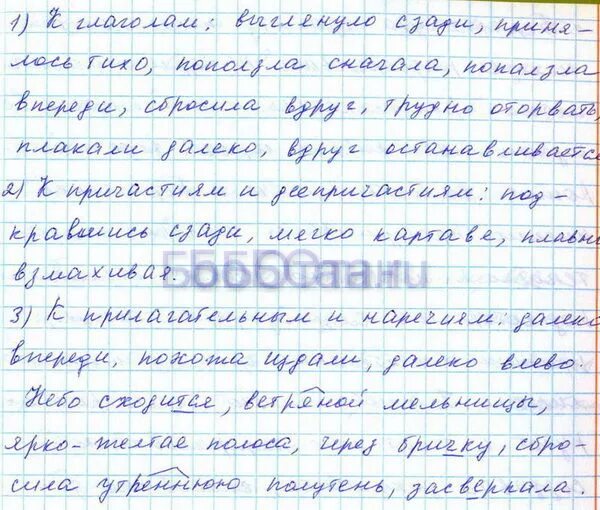 1) К глаголам: выглянуло сзади, приня-
лось тихо, поползла сначала, поползла
впереди, сбросила вдруг, трудно оторвать,
плакали далеко, вдруг останавливается
2) К причастиям и деепричастиям: под-
кравшись сзади, мягко картавя, плавно
взмахивая.
3) К прилагательным и наречиям: далеко
впереди, похожа издали, далеко влево.
Небо сходится, ветряной мельницы,
ярко-желтая полоса, через бричку, сбро-
сила утреннюю полутень, засверкала.